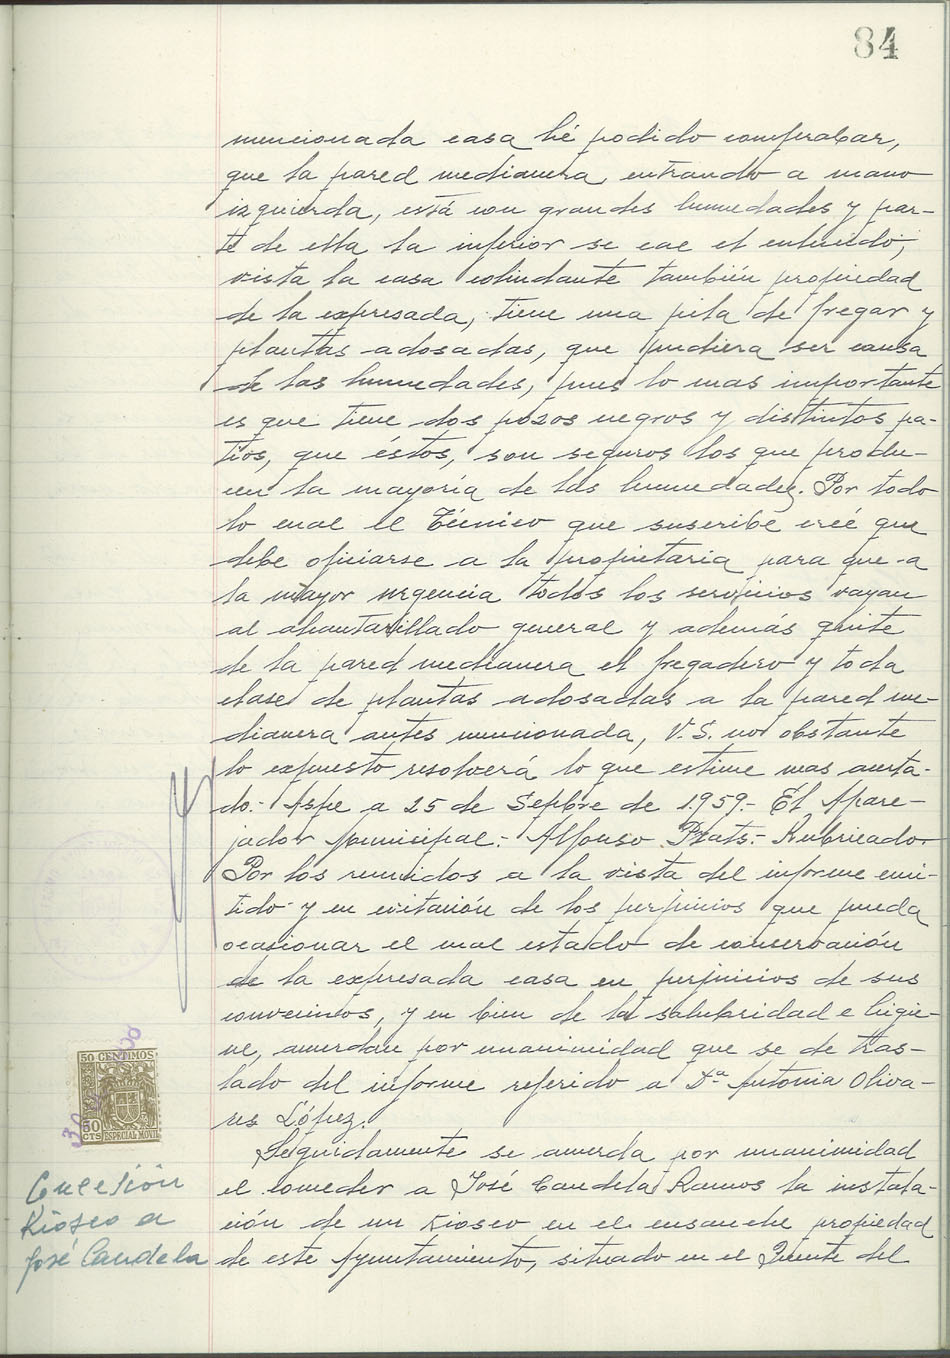 84
mencionada casa hé podido comprobar,
que la pared medianera, entrando a mano
izquierda, está con grandes humedades y par-
te de ella la inferior se cae el enlucido;
vista la casa colindante también propiedad
de la expresada, tiene una pila de fregar y
plantas adosadas, que pudiera ser causa
de las humedades, pues lo mas importante
es que tiene dos pozos negros y distintos pa-
tios, que éstos, son seguros los que produ-
cen la mayoría de las humedades. Por todo
lo cual el Técnico que suscribe creé que
debe oficiarse a la propietaria para que a
la mayor urgencia todos los servicios vayan
al alcantarillado general y además quite
de la pared medianera el fregadero y toda
clase de plantas adosadas a la pared me-
dianera antes mencionada, V.S. no obstante
lo expuesto resolverá lo que estime mas acerta-
do.- Aspe a 25 de Sepbre de 1.959.- El Apare-
jador Municipal.- Alfonso Prats.- Rubricado.
Por los reunidos a la vista del informe emi-
tido y en evitación de los perjuicios que pueda
ocasionar el mal estado de conservación
de la expresada casa en perjuicios de sus
convecinos, y en bien de la salubridad e higie-
ne, acuerdan por unanimidad que se de tras-
lado del informe referido a Dª Antonia Oliva-
res López.
Seguidamente se acuerda por unanimidad
el conceder a José Candela Ramos la instala-
ción de un Kiosco en el ensanche propiedad
de este Ayuntamiento, situado en el Puente del
50 CENTIMOS
50
CTS ESPECIAL MOVIL
Concesión
Kiosco a
José Candela